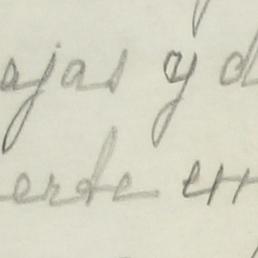 ajas y d
erte en